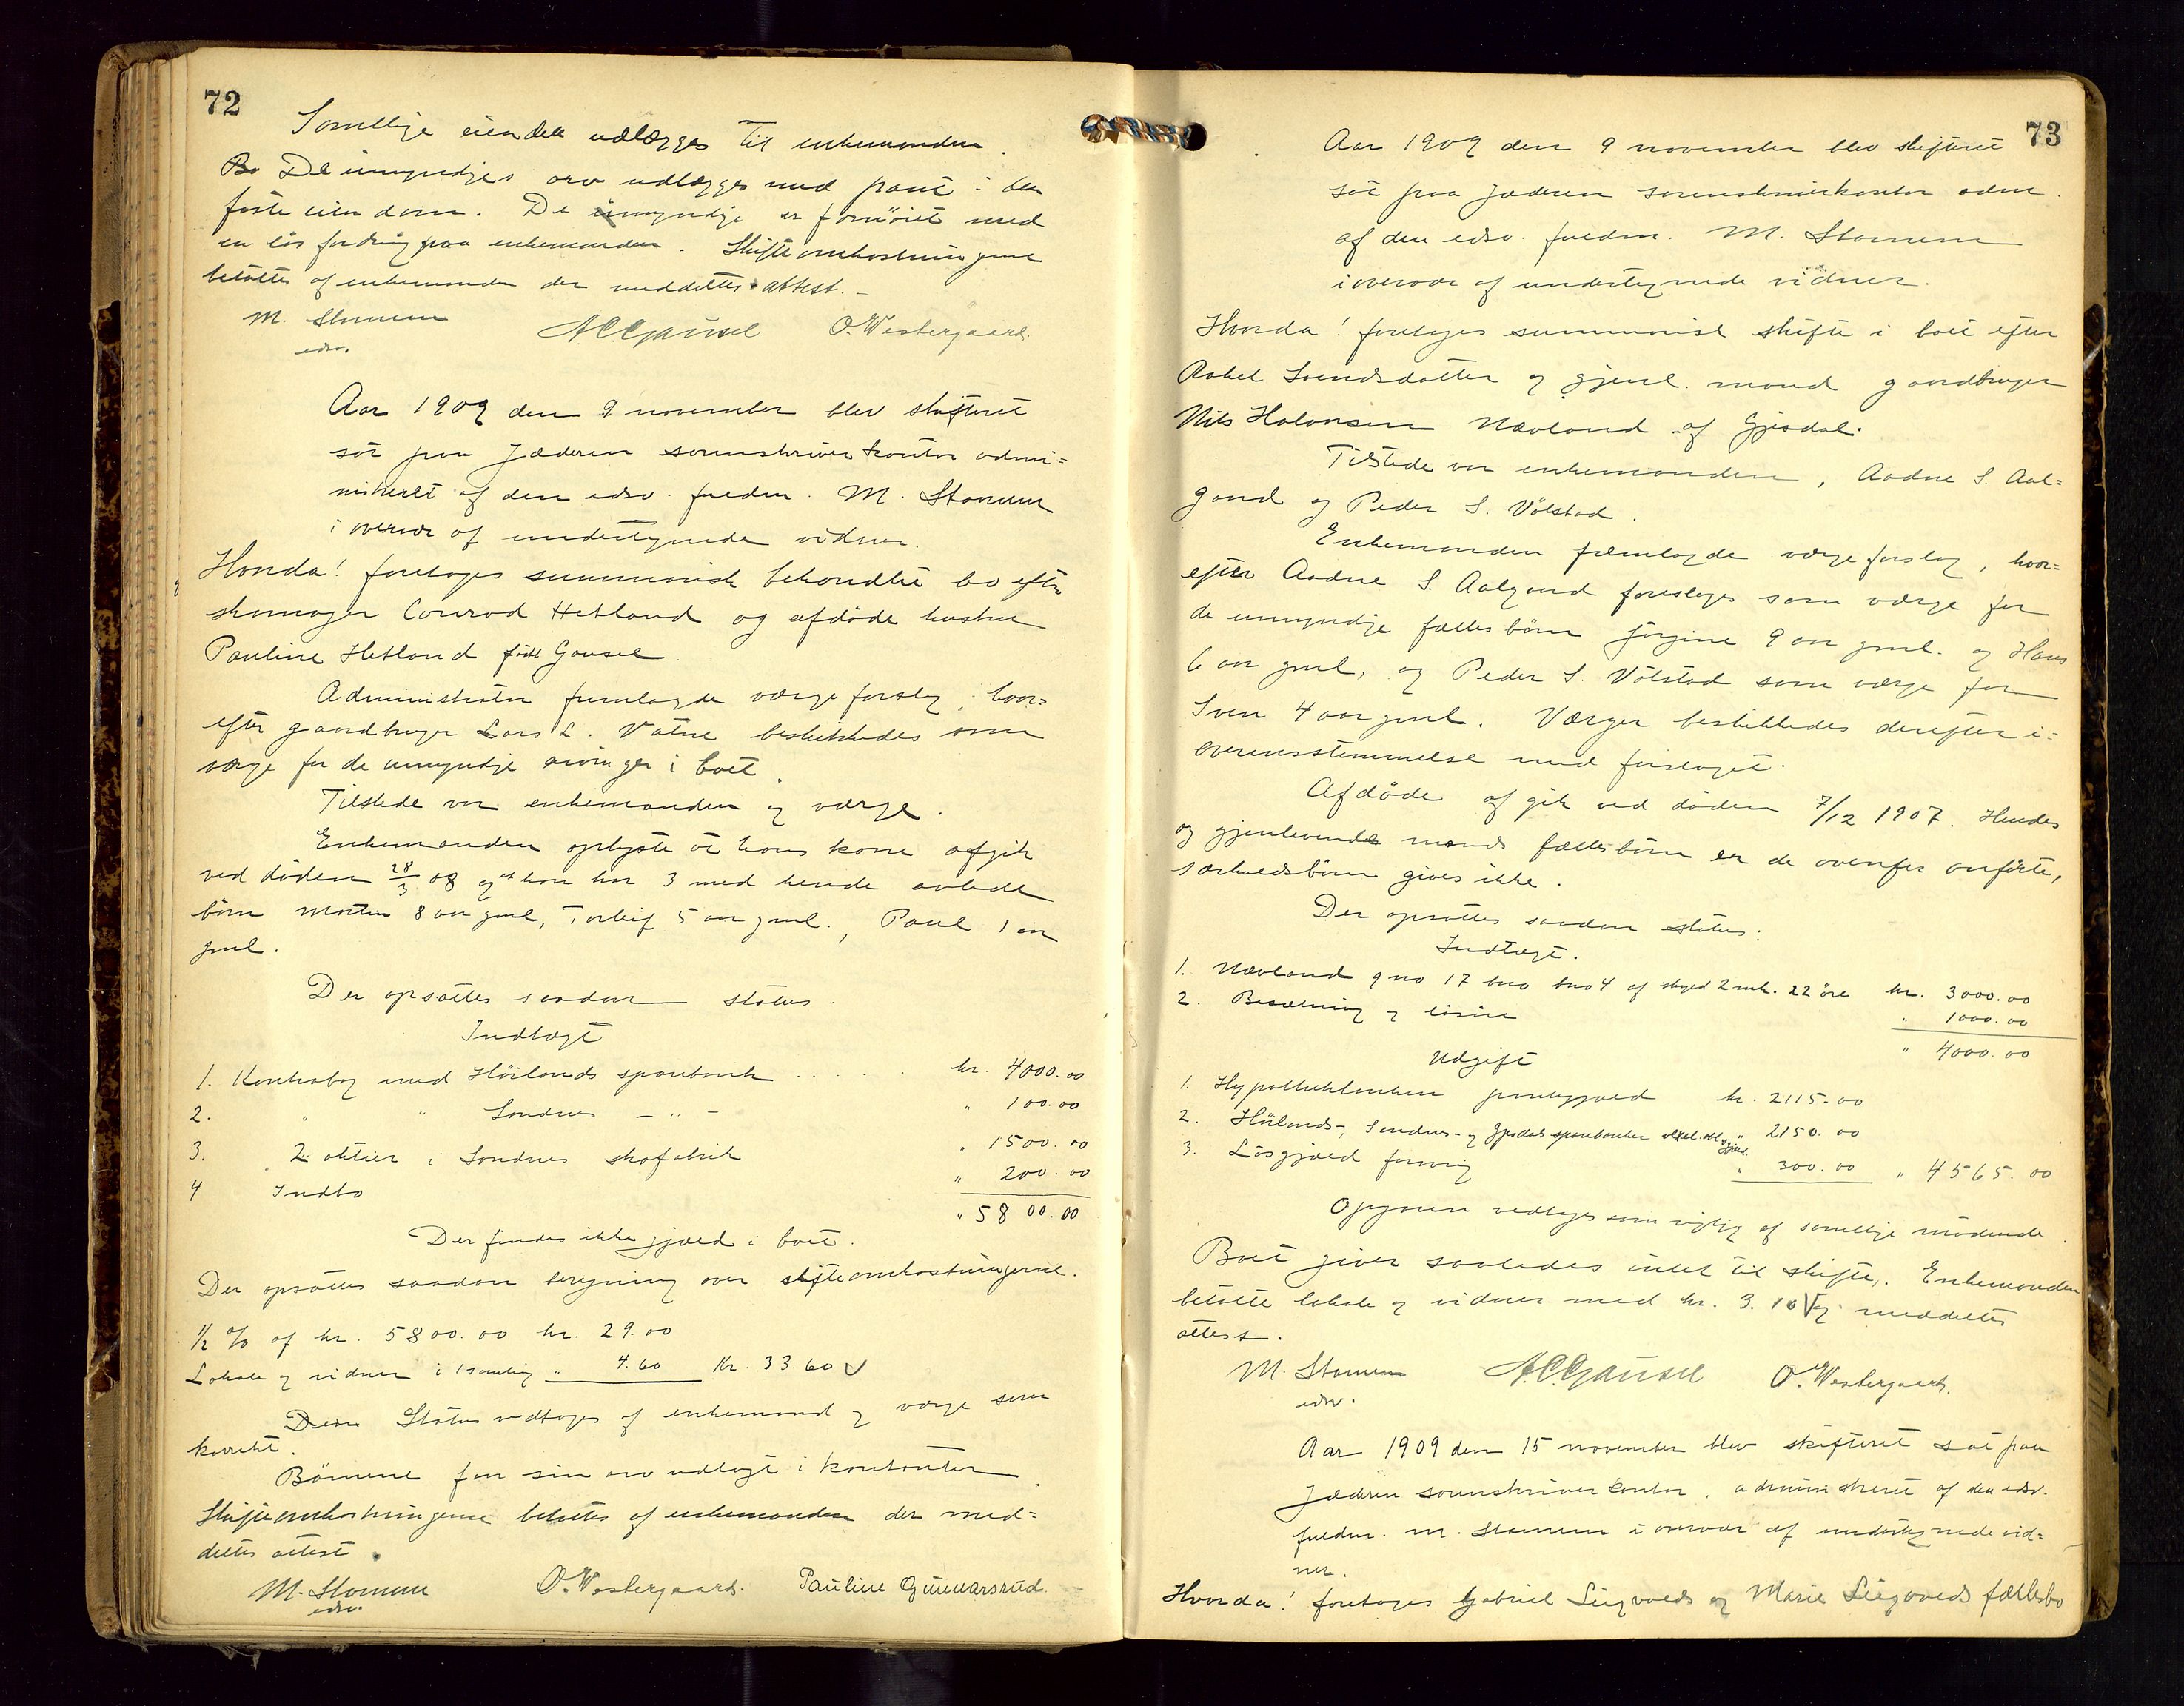 72
Samtlige eiendele udlægges til enkemanden.
De umyndiges arv udlægges med pant i den
faste eiendom. De myndige er fornøiet med
en løs fordring paa enkemanden. Skifteomkostningerne
betaltes af enkemanden der meddeltes attest.
M. Stamum A.C. Gausel O. Westergaard.
edsv.
Aar 1909 den 9 november blev skifteret
sat paa Jæderen sorenskriverkontor admi=
nistreret af den edsv. fuldm. M. Stamum
i overvær af undertegnede vidner.
Hvorda! foretoges summarisk behandlet bo efter
skomager Conrad Hetland og afdøde hustru
Pauline Hetland født Gausel.
Administrator fremlagde værgeforslag, hvor=
efter gaardbruger Lars L. Vatne beskikkedes som
værge for de umyndige arvinger i boet.
Tilstede var enkemanden og værge.
Enkemanden oplyste at hans kone afgik
ved døden 28/3 08 og at han har 3 med hende avlede
børn Morten 8 aar gml, Torleif 5 aar gml., Paul 1 aar
gml.
Der opsattes saadan status.
Indtægt
1. Kontrabog med Höilands sparebank . . . . . kr. 4000.00
2. " " Sandnes — " — " 100.00
3. 2 aktier i Sandnes skofabrik " 1500.00
4 Indbo " 200.00
" 5800.00
Der findes ikke gjæld i boet.
Der opsattes saadan beregning over skifteomkostningerne.
1/2 % af kr. 5800.00 kr. 29.00
Lokale og vidner i 1 samling " 4.60 Kr. 33.60
Status vedtoges af enkemand og værge som
korrekt.
Börnene faar sin arv udlagt i kontanter.
Skifteomkostningerne betaltes af enkemanden der med=
deltes attest.
M. Stamum O. Westergaard. Pauline Gunnarsrud.
edsv.
73
Aar 1909 den 9 november blev skifteret
sat paa Jæderen sorenskriverkontor adm.
af den edsv. fuldm. M. Stamum
i overvær af undertegnede vidner.
Hvorda! foretoges summarisk skifte i boet efter
Rakel Svendsdatter og gjenl. mand gaardbruger
Nils Halvorsen Nævland af Gjesdal.
Tilstede var enkemanden, Aadne S. Aal=
gaard og Peder S. Völstad.
Enkemanden fremlagde værgeforslag, hvor=
efter Aadne S. Aalgaard foresloges som værge for
de umyndige fællesbörn Jörgine 9 aar gml. og Hans
6 aar gml, og Peder S. Völstad som værge for
Sven 4 aar gml. Værger beskikkedes derefter i=
overensstemmelse med forslaget.
Afdöde afgik ved döden 7/12 1907. Hendes
og gjenlevende mands fællesbörn er de ovenfor anförte,
særkuldsbörn gives ikke.
Der opsattes saadan status:
Indtægt.
1. Nævland gno 17 bno 4 af skyld 2 mk. 22 öre kr. 3000.00
2. Besætning og lösöre " 1000.00
" 4000.00
Udgift
1. Hypothekbanken pantegjæld kr. 2115.00
2. Höilands-, Sandnes- og Gjesdal sparebanker " 2150.00
3. Lösgjæld forövrig " 300.00 " 4565.00
Opgaven vedtoges som rigtig af samtlige mödende.
Boet giver saaledes intet til skifte. Enkemanden
betalte lokale og vidner med kr. 3.10 og meddeltes
attest.
M. Stamum A.C. Gausel O. Westergaard.
edsv.
Aar 1909 den 15 november blev skifteret sat paa
Jæderen sorenskriverkontor, administreret af den edsv.
fuldm. M. Stamum i overvær af undertegnede vid=
ner.
Hvorda! foretoges Gabriel Sigvalds og Marie Sigvalds fællesbo